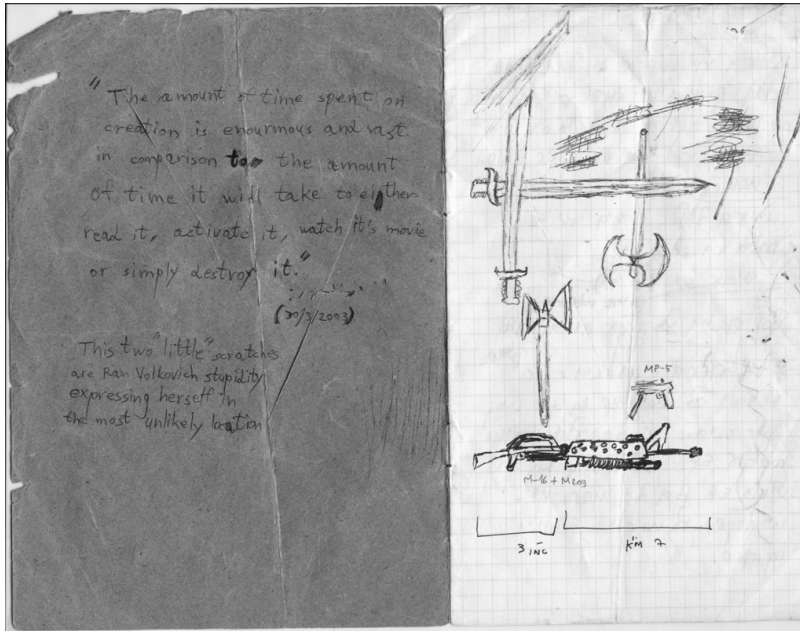 "The amount of time spent on
creation is enourmous and vast
in comparison to the amount
of time it will take to either
read it, activate it, watch it's movie
or simply destroy it."
(30/3/2003)
This two "little" scratches
are Ran Volkovich stupidity
expressing herself in
the most unlikely location
MP-5
M-16 + M203
3 INC
KM 7